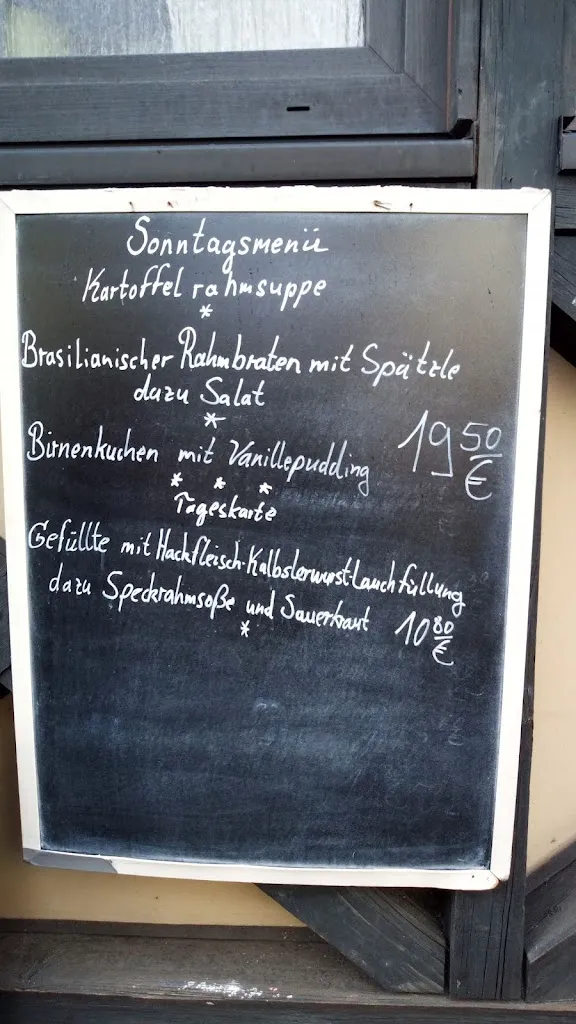 Sonntagsmenü
Kartoffelrahmsuppe
*
Brasilianischer Rahmbraten mit Spätzle
dazu Salat
*
Birnenkuchen mit Vanillepudding 19 50 €
* * *
Tageskarte
Gefüllte mit Hackfleisch-Kalbsleberwurst-Lauchfüllung
dazu Speckrahmsoße und Sauerkraut 10 80 €
*